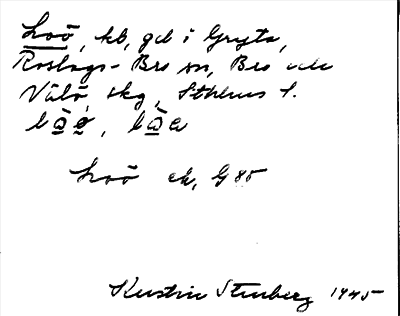 Loö, kb, gd i Gryta,
Roslags-Bro sn, Bro och
Vätö skg, Sthlms l.
Loö ek, G 85
Kerstin Stenberg 1945